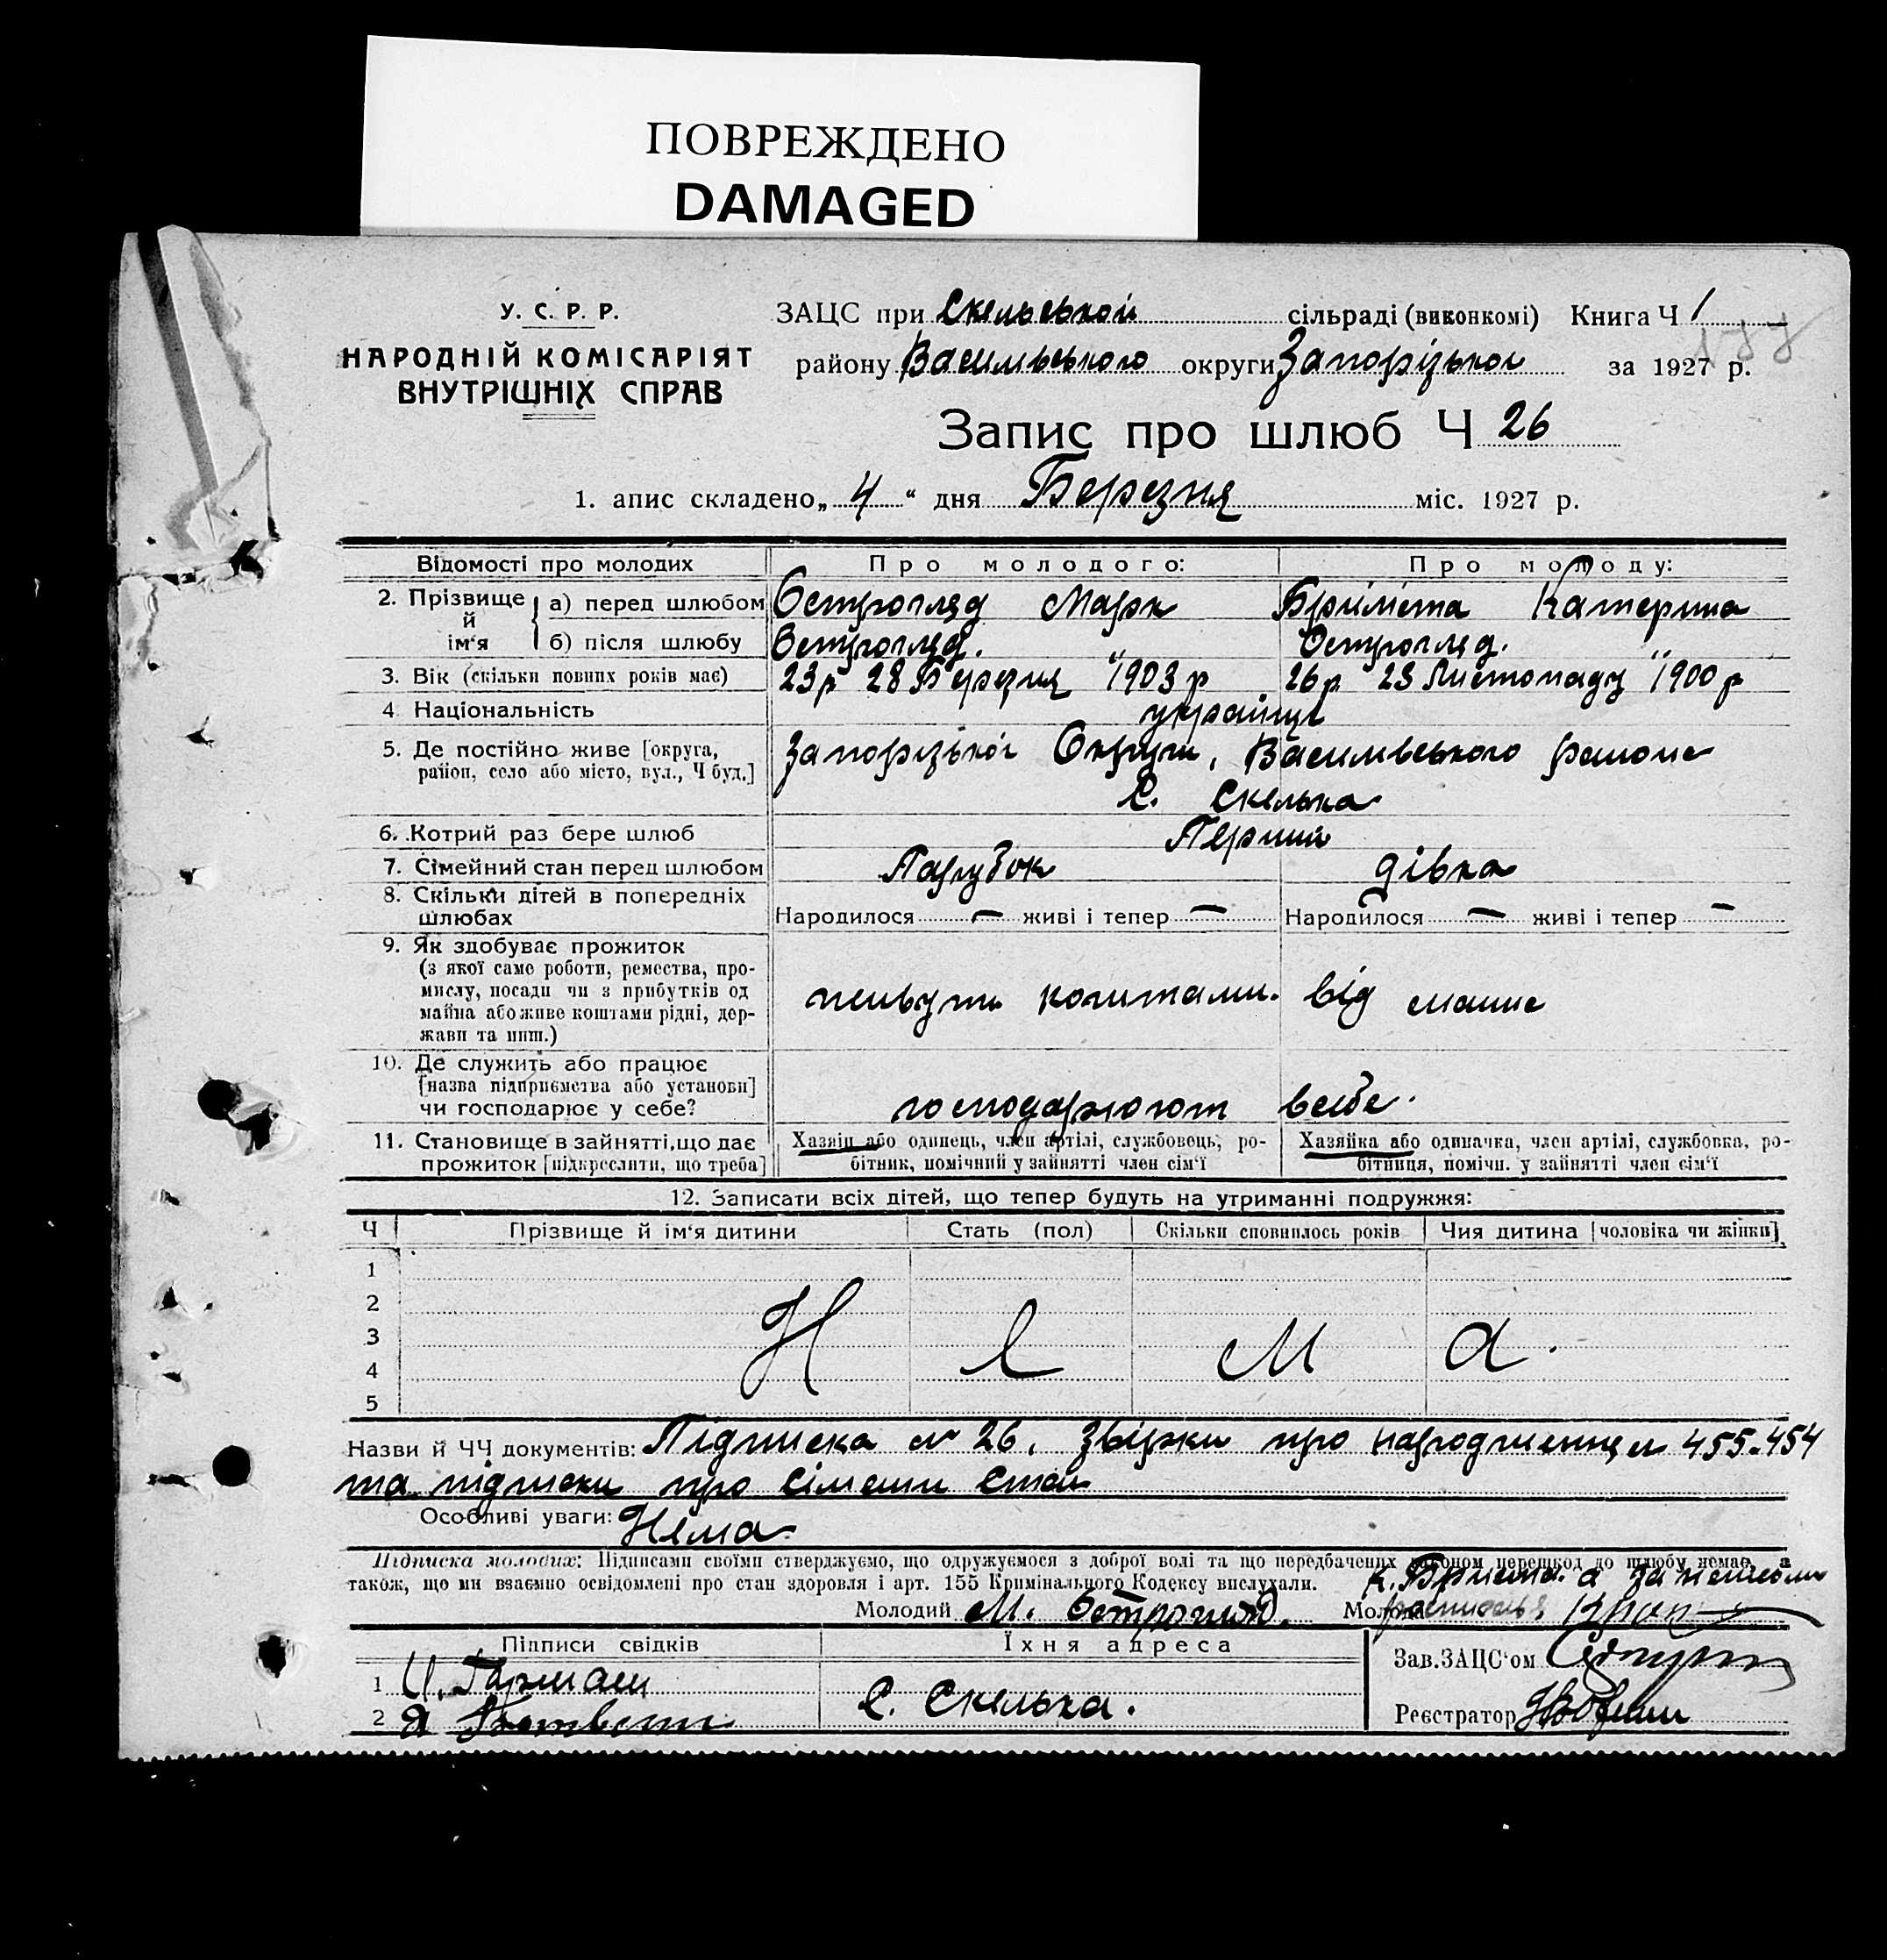 ПОВРЕЖДЕНО
DAMAGED
У. С. Р. Р.
НАРОДНІЙ КОМІСАРІЯТ
ВНУТРІШНІХ СПРАВ
ЗАЦС при Скельській сільраді (виконкомі) Книга Ч 1
району Василівського округи Запорізької за 1927 р.
Запис про шлюб Ч 26
1. апис складено „ 4 “ дня Березня міс. 1927 р.
Відомості про молодих Про молодого: Про молоду:
2. Прізвище й ім‘я а) перед шлюбом Остропляд Марк Катерина
б) після шлюбу Остропляд. Остропляд.
3. Вік (скільки повних років має) 23р 28 Березня 1903 р 26 р 23 Листопаду 1900 р
4 Національність українці
5. Де постійно живе [округа,
район, село або місто, вул., Ч буд.] Запорізької Округи, Василівського району
С. Скелька
6. Котрий раз бере шлюб Перший
7. Сімейний стан перед шлюбом Парубок дівка
8. Скільки дітей в попередніх
шлюбах Народилося — живі і тепер — Народилося — живі і тепер —
9. Як здобуває прожиток
(з якої саме роботи, ремества, про-
мислу, посади чи з прибутків од
майна або живе коштами рідні, дер-
жави та инш.) живуть коштами від
10. Де служить або працює
[назва підприємства або установи]
чи господарює у себе? господарюют всебе.
11. Становище в зайнятті, що дає
прожиток [підкреслити, що треба]
Хазяїн або одинець, член артілі, службовець, ро-
бітник, помічний у зайнятті член сім‘ї
Хазяйка або одиначка, член артілі, службовка, ро-
бітниця, помічн. у зайнятті член сім‘ї
12. Записати всіх дітей, що тепер будуть на утриманні подружжя:
Ч Прізвище й ім‘я дитини Стать (пол) Скільки сповнилось років Чия дитина [чоловіка чи жінки]
1
2
3 Н е м а.
4
5
Назви й ЧЧ документів: Підписка № 26, звірки про народження 455-454
та підписки про сімейн стан
Особливі уваги: Нема
Підписка молодих: Підписами своїми стверджуємо, що одружуємося з доброї волі та що передбачених законом перешкод до шлюбу немає, а
також, що ми взаємно освідомлені про стан здоровля і арт. 155 Кримінального Кодексу вислухали.
Молодий М. Остропляд. Молода
Підписи свідків Їхня адреса
1 И. Гармаш
2 Я
С. Скелька.
Зав. ЗАЦС‘ом
Реєстратор